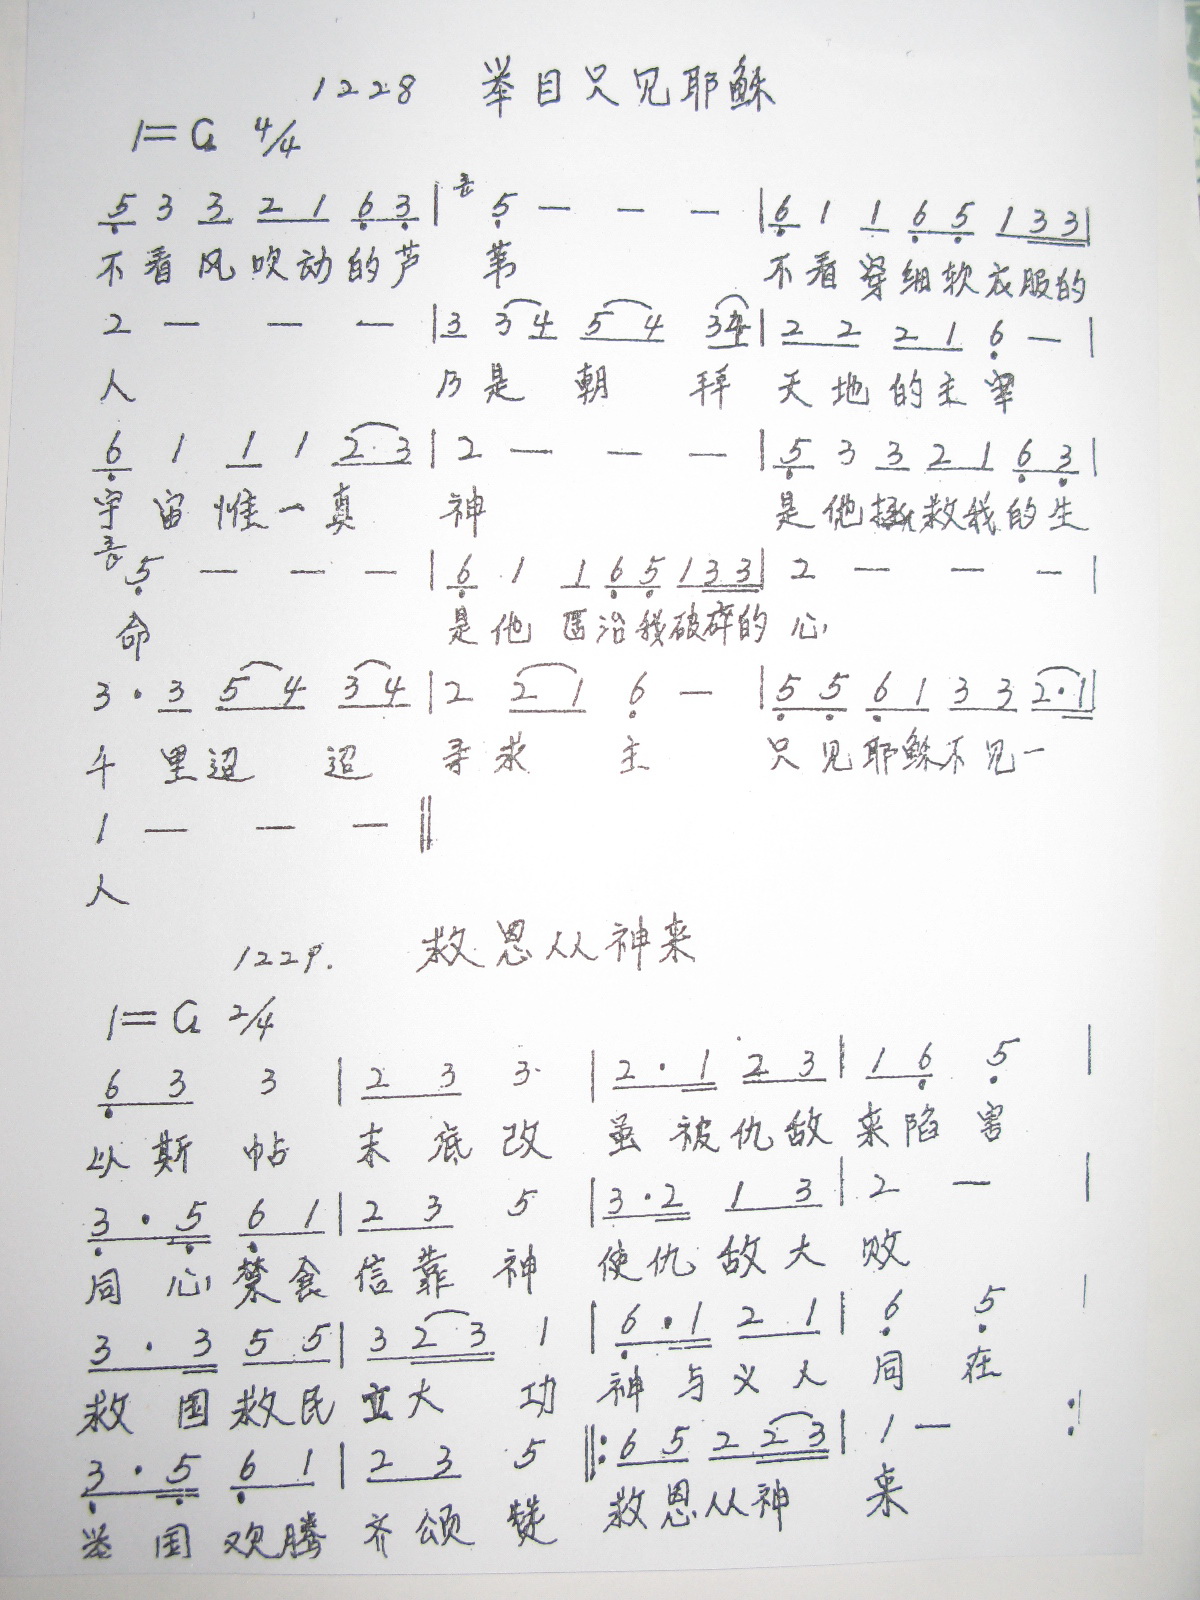 1228 举目只见耶稣
1=G 4/4
5 3 3 2 1 6 3 | 5 — — — | 6 1 1 6 5 1 3 3 |
不看风吹动的芦 苇 不看穿细软衣服的
2 — — — | 3 3 4 5 4 3 4 | 2 2 2 1 6 — |
人 乃是朝拜 天地的主宰
6 1 1 1 2 · 3 | 2 — — — | 5 3 3 2 1 6 3 |
宇宙惟一真 神 是他拯救我的生
5 — — — | 6 1 1 6 5 1 3 3 | 2 — — — |
命 是他医治我破碎的 心
3 · 3 5 4 3 4 | 2 2 1 6 — | 5 5 6 1 3 3 2 · 1 |
千里迢迢 寻求主 只见耶稣不见一
1 — — — ‖
人
1229. 救恩从神来
1=G 2/4
6 3 3 | 2 3 3 | 2 · 1 2 3 | 1 6 5 |
以斯帖 末底改 虽被仇敌 来陷害
3 · 5 6 1 | 2 3 5 | 3 · 2 1 3 | 2 — |
同心禁食 信靠神 使仇敌大 败
3 · 3 5 5 | 3 2 3 1 | 6 · 1 2 1 | 6 5 |
救国救民 立大功 神与义人 同在
3 · 5 6 1 | 2 3 5 ‖: 6 5 2 2 3 | 1 — :|
举国欢腾 齐颂赞 救恩从神 来